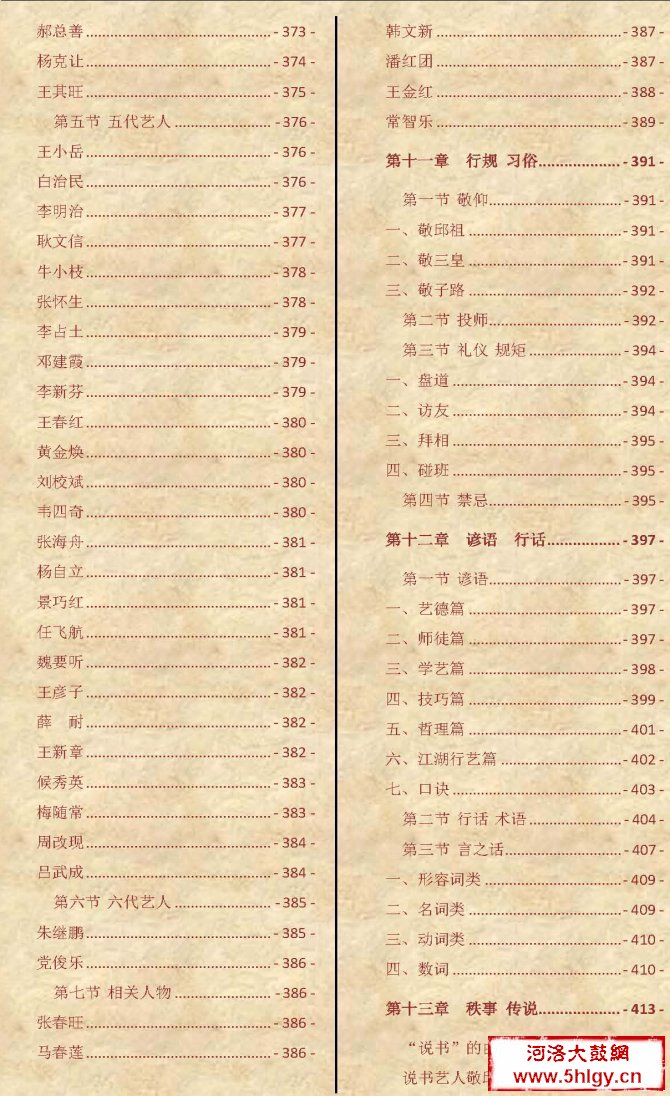 郝总善 - 373 -
杨克让 - 374 -
王其旺 - 375 -
第五节 五代艺人 - 376 -
王小岳 - 376 -
白治民 - 376 -
李明治 - 377 -
耿文信 - 377 -
牛小枝 - 378 -
张怀生 - 378 -
李占土 - 379 -
邓建霞 - 379 -
李新芬 - 379 -
王春红 - 380 -
黄金焕 - 380 -
刘校斌 - 380 -
韦四奇 - 380 -
张海舟 - 381 -
杨自立 - 381 -
景巧红 - 381 -
任飞航 - 381 -
魏要听 - 382 -
王彦子 - 382 -
薛　耐 - 382 -
王新章 - 382 -
候秀英 - 383 -
梅随常 - 383 -
周改现 - 384 -
吕武成 - 384 -
第六节 六代艺人 - 385 -
朱继鹏 - 385 -
党俊乐 - 386 -
第七节 相关人物 - 386 -
张春旺 - 386 -
马春莲 - 386 -
韩文新 - 387 -
潘红团 - 387 -
王金红 - 388 -
常智乐 - 389 -
第十一章　行规 习俗 - 391 -
第一节 敬仰 - 391 -
一、敬邱祖 - 391 -
二、敬三皇 - 391 -
三、敬子路 - 392 -
第二节 投师 - 392 -
第三节 礼仪 规矩 - 394 -
一、盘道 - 394 -
二、访友 - 394 -
三、拜相 - 395 -
四、碰班 - 395 -
第四节 禁忌 - 395 -
第十二章　谚语　行话 - 397 -
第一节 谚语 - 397 -
一、艺德篇 - 397 -
二、师徒篇 - 397 -
三、学艺篇 - 398 -
四、技巧篇 - 399 -
五、哲理篇 - 401 -
六、江湖行艺篇 - 402 -
七、口诀 - 403 -
第二节 行话 术语 - 404 -
第三节 言之话 - 407 -
一、形容词类 - 409 -
二、名词类 - 409 -
三、动词类 - 410 -
四、数词 - 410 -
第十三章　秩事 传说 - 413 -
“说书”的
说书艺人敬
河洛大鼓網
www.5hlgy.cn